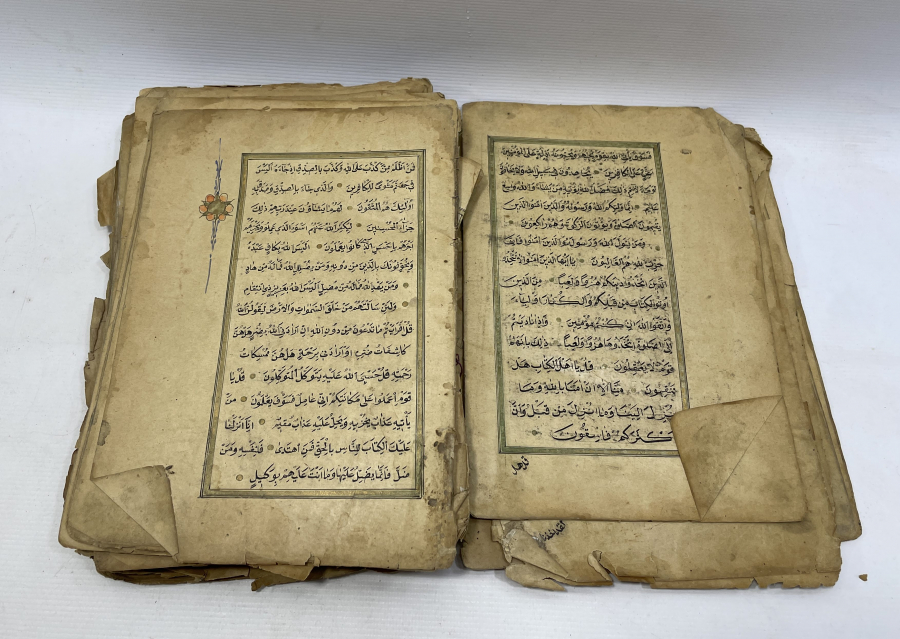 فسوف يأتي الله بقوم يحبهم ويحبونه اذلة على المؤمنين
اعزة على الكافرين يجاهدون في سبيل الله ولا يخافون
لومة لائم ذلك فضل الله يؤتيه من يشاء والله واسع
عليم انما وليكم الله ورسوله والذين امنوا الذين
يقيمون الصلوة ويؤتون الزكوة وهم راكعون
ومن يتول الله ورسوله والذين امنوا فان
حزب الله هم الغالبون يا ايها الذين امنوا لا تتخذوا
الذين اتخذوا دينكم هزوا ولعبا من الذين
اوتوا الكتاب من قبلكم والكفار اولياء
واتقوا الله ان كنتم مؤمنين واذا ناديتم
الى الصلوة اتخذوها هزوا ولعبا ذلك بانهم
قوم لا يعقلون قل يا اهل الكتاب هل
تنقمون منا الا ان امنا بالله وما
انزل الينا وما انزل من قبل وان
اكثركم فاسقون
قل هل
فمن اظلم ممن كذب على الله وكذب بالصدق اذ جاءه اليس
في جهنم مثوى للكافرين والذي جاء بالصدق وصدق به
اولئك هم المتقون لهم ما يشاؤن عند ربهم ذلك
جزاء المحسنين ليكفر الله عنهم اسوء الذي عملوا ويجزيهم
اجرهم باحسن الذي كانوا يعملون اليس الله بكاف عبده
ويخوفونك بالذين من دونه ومن يضلل الله فما له من هاد
ومن يهد الله فما له من مضل اليس الله بعزيز ذي انتقام
ولئن سالتهم من خلق السموات والارض ليقولن الله
قل افرايتم ما تدعون من دون الله ان ارادني الله بضر هل هن
كاشفات ضره او ارادني برحمة هل هن ممسكات
رحمته قل حسبي الله عليه يتوكل المتوكلون قل يا
قوم اعملوا على مكانتكم اني عامل فسوف تعلمون من
يأتيه عذاب يخزيه ويحل عليه عذاب مقيم انا انزلنا
عليك الكتاب للناس بالحق فمن اهتدى فلنفسه ومن
ضل فانما يضل عليها وما انت عليهم بوكيل